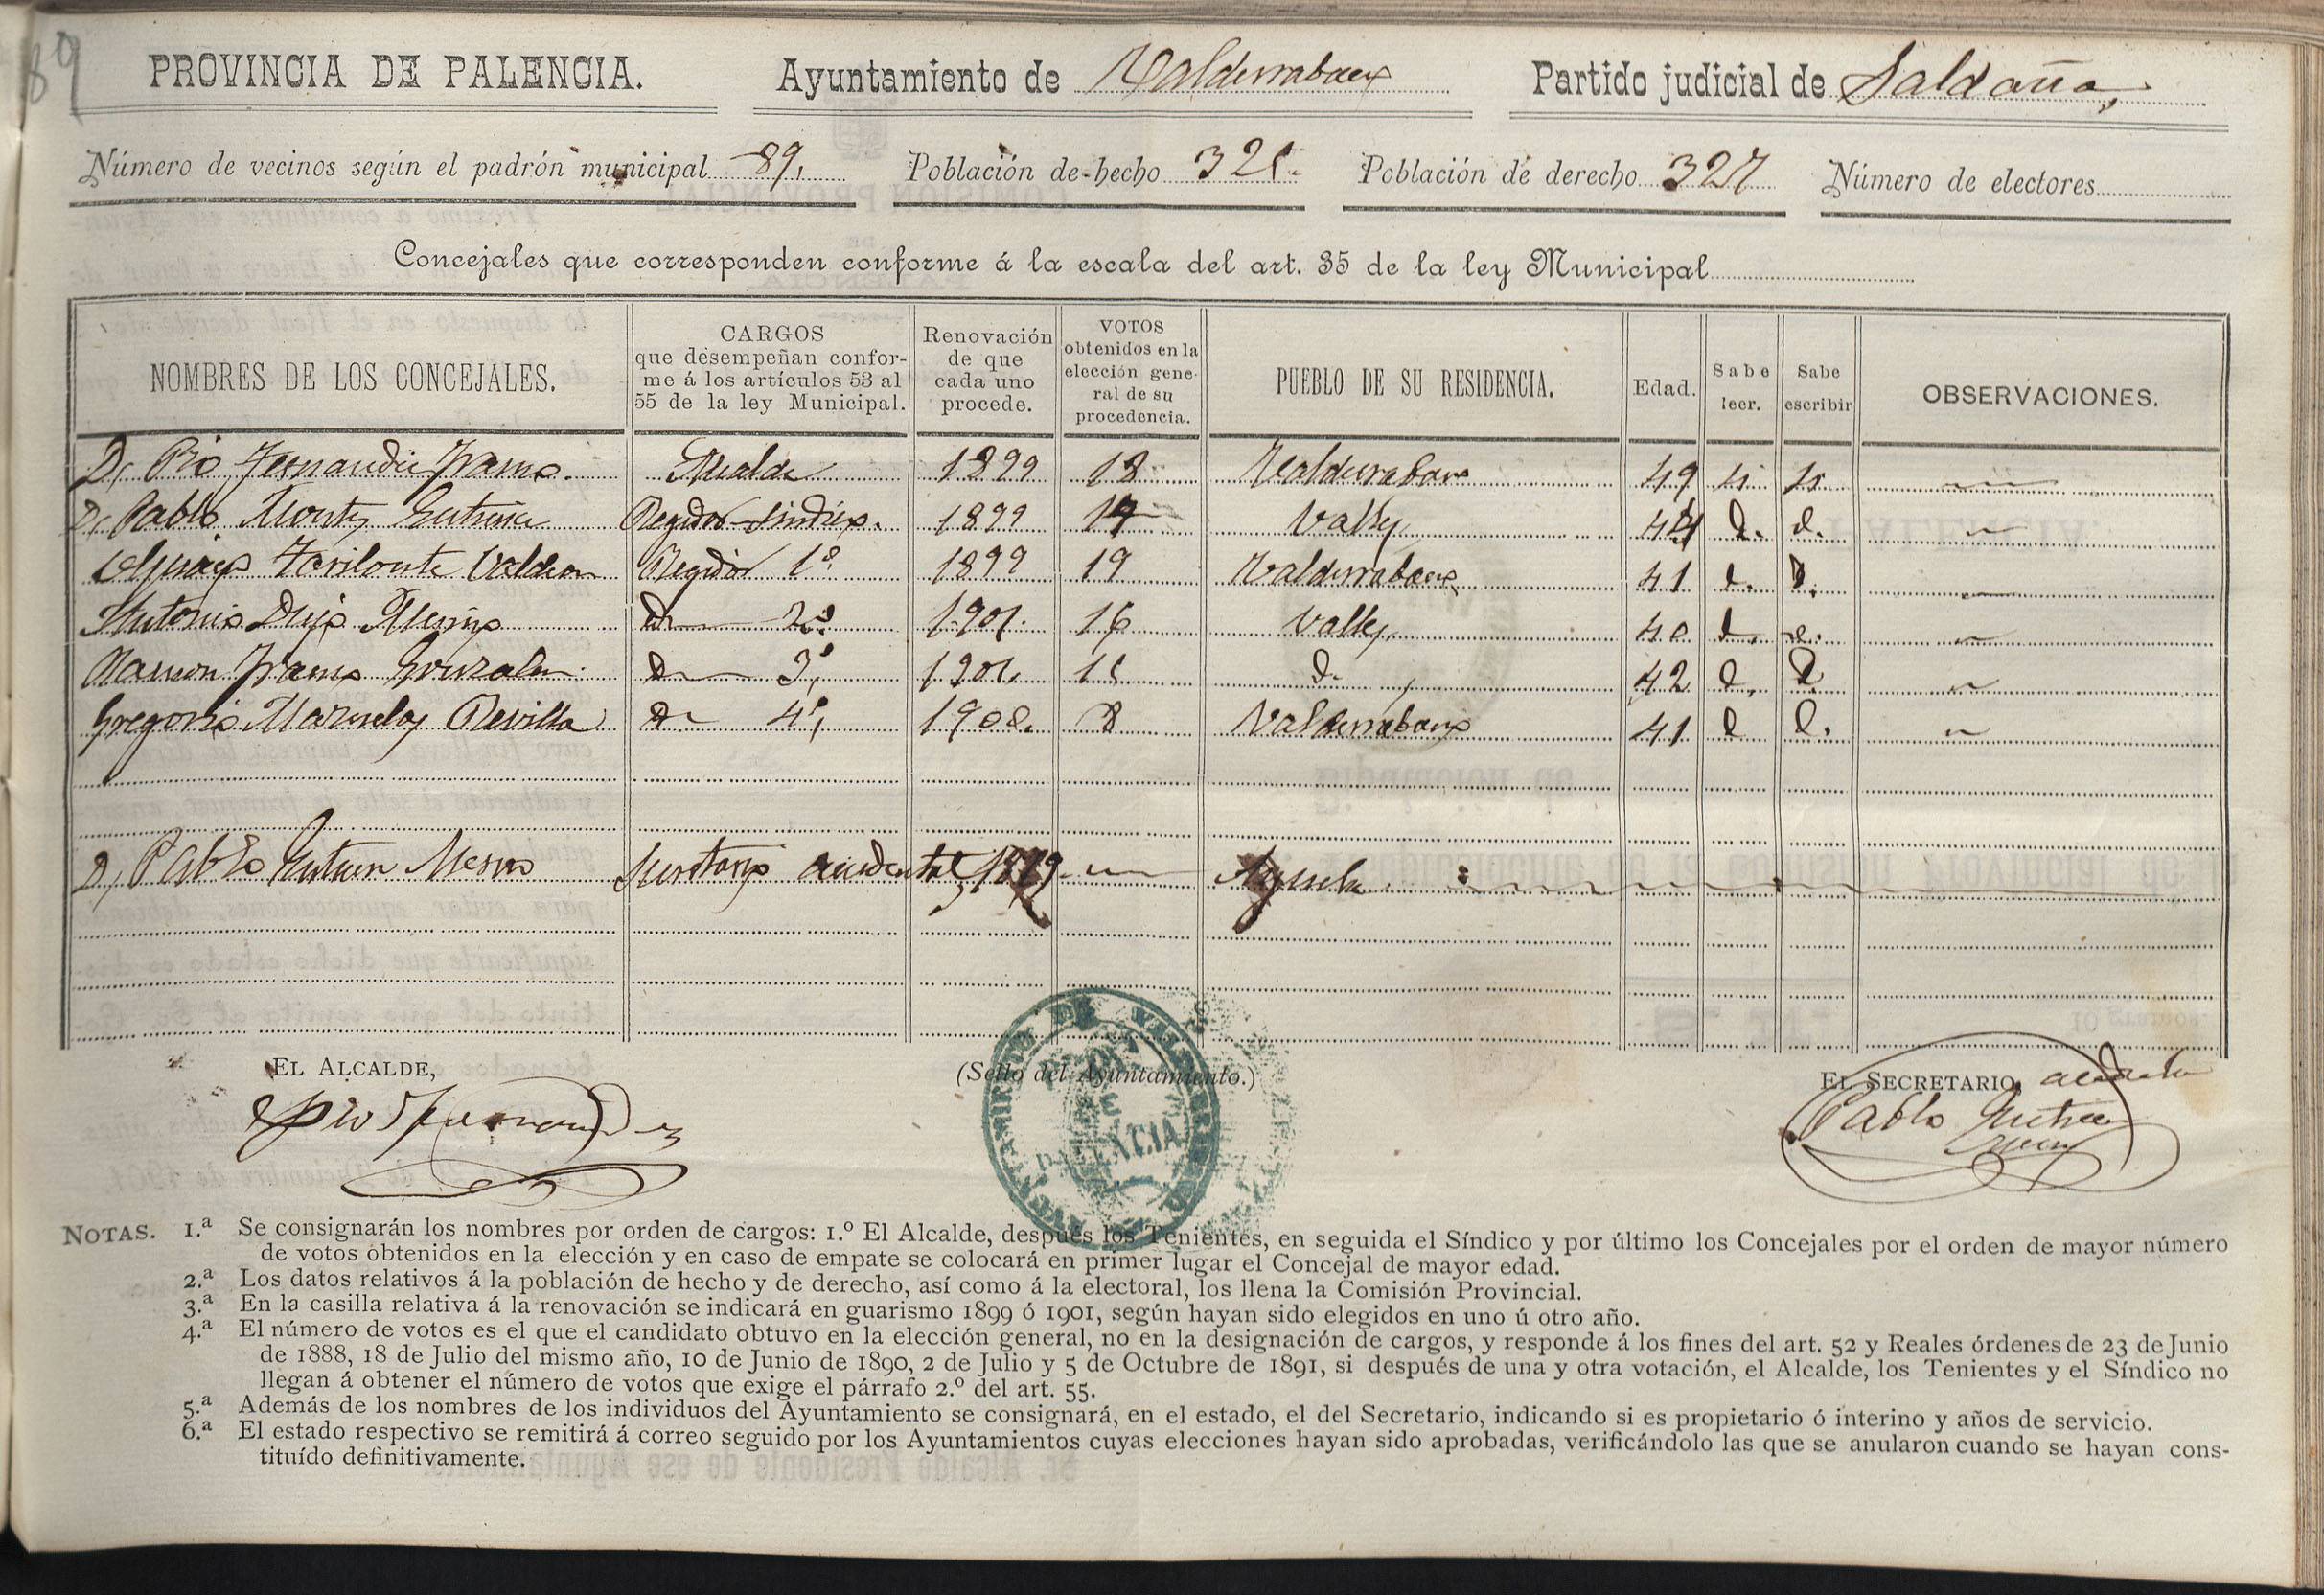 89
PROVINCIA DE PALENCIA. Ayuntamiento de Valderrabano Partido judicial de Saldaña,
Número de vecinos según el padrón municipal 89, Población de hecho 321. Población de derecho 327 Número de electores
Concejales que corresponden conforme á la escala del art. 35 de la ley Municipal
NOMBRES DE LOS CONCEJALES. CARGOS que desempeñan confor- me á los artículos 53 al 55 de la ley Municipal. Renovación de que cada uno procede. VOTOS obtenidos en la elección gene- ral de su procedencia. PUEBLO DE SU RESIDENCIA. Edad. Sabe leer. Sabe escribir OBSERVACIONES.
D. Pio Fernandez Alcalde 1899 18 Valderrabano 49 si si
D. Pablo Montes Gutierrez Regidor Sindico. 1899 Valles 44 d. d.
Fontecha Regidor 1º 1899 19 Valderrabano 41 d. d.
Antonio Merino D 2º 1901. 16 Valles 40 d. d.
Ramon Gonzalez D 3º, 1901. 15 d. 42 d. d.
Gregorio Mazuelas Revilla D 4º, 1901. 8 Valderrabano 41 d d.
D. Pablo Gutierrez Merino Secretario accidental, Ayuela
EL ALCALDE, (Sello del Ayuntamiento.) EL SECRETARIO, accidental
Pio Fernandez Pablo Gutierrez
AYUNTAMIENTO DE VALDERRABANO
PALENCIA
NOTAS. 1.ª Se consignarán los nombres por orden de cargos: 1.º El Alcalde, después los Tenientes, en seguida el Síndico y por último los Concejales por el orden de mayor número
de votos obtenidos en la elección y en caso de empate se colocará en primer lugar el Concejal de mayor edad.
2.ª Los datos relativos á la población de hecho y de derecho, así como á la electoral, los llena la Comisión Provincial.
3.ª En la casilla relativa á la renovación se indicará en guarismo 1899 ó 1901, según hayan sido elegidos en uno ú otro año.
4.ª El número de votos es el que el candidato obtuvo en la elección general, no en la designación de cargos, y responde á los fines del art. 52 y Reales órdenes de 23 de Junio
de 1888, 18 de Julio del mismo año, 10 de Junio de 1890, 2 de Julio y 5 de Octubre de 1891, si después de una y otra votación, el Alcalde, los Tenientes y el Síndico no
llegan á obtener el número de votos que exige el párrafo 2.º del art. 55.
5.ª Además de los nombres de los individuos del Ayuntamiento se consignará, en el estado, el del Secretario, indicando si es propietario ó interino y años de servicio.
6.ª El estado respectivo se remitirá á correo seguido por los Ayuntamientos cuyas elecciones hayan sido aprobadas, verificándolo las que se anularon cuando se hayan cons-
tituído definitivamente.